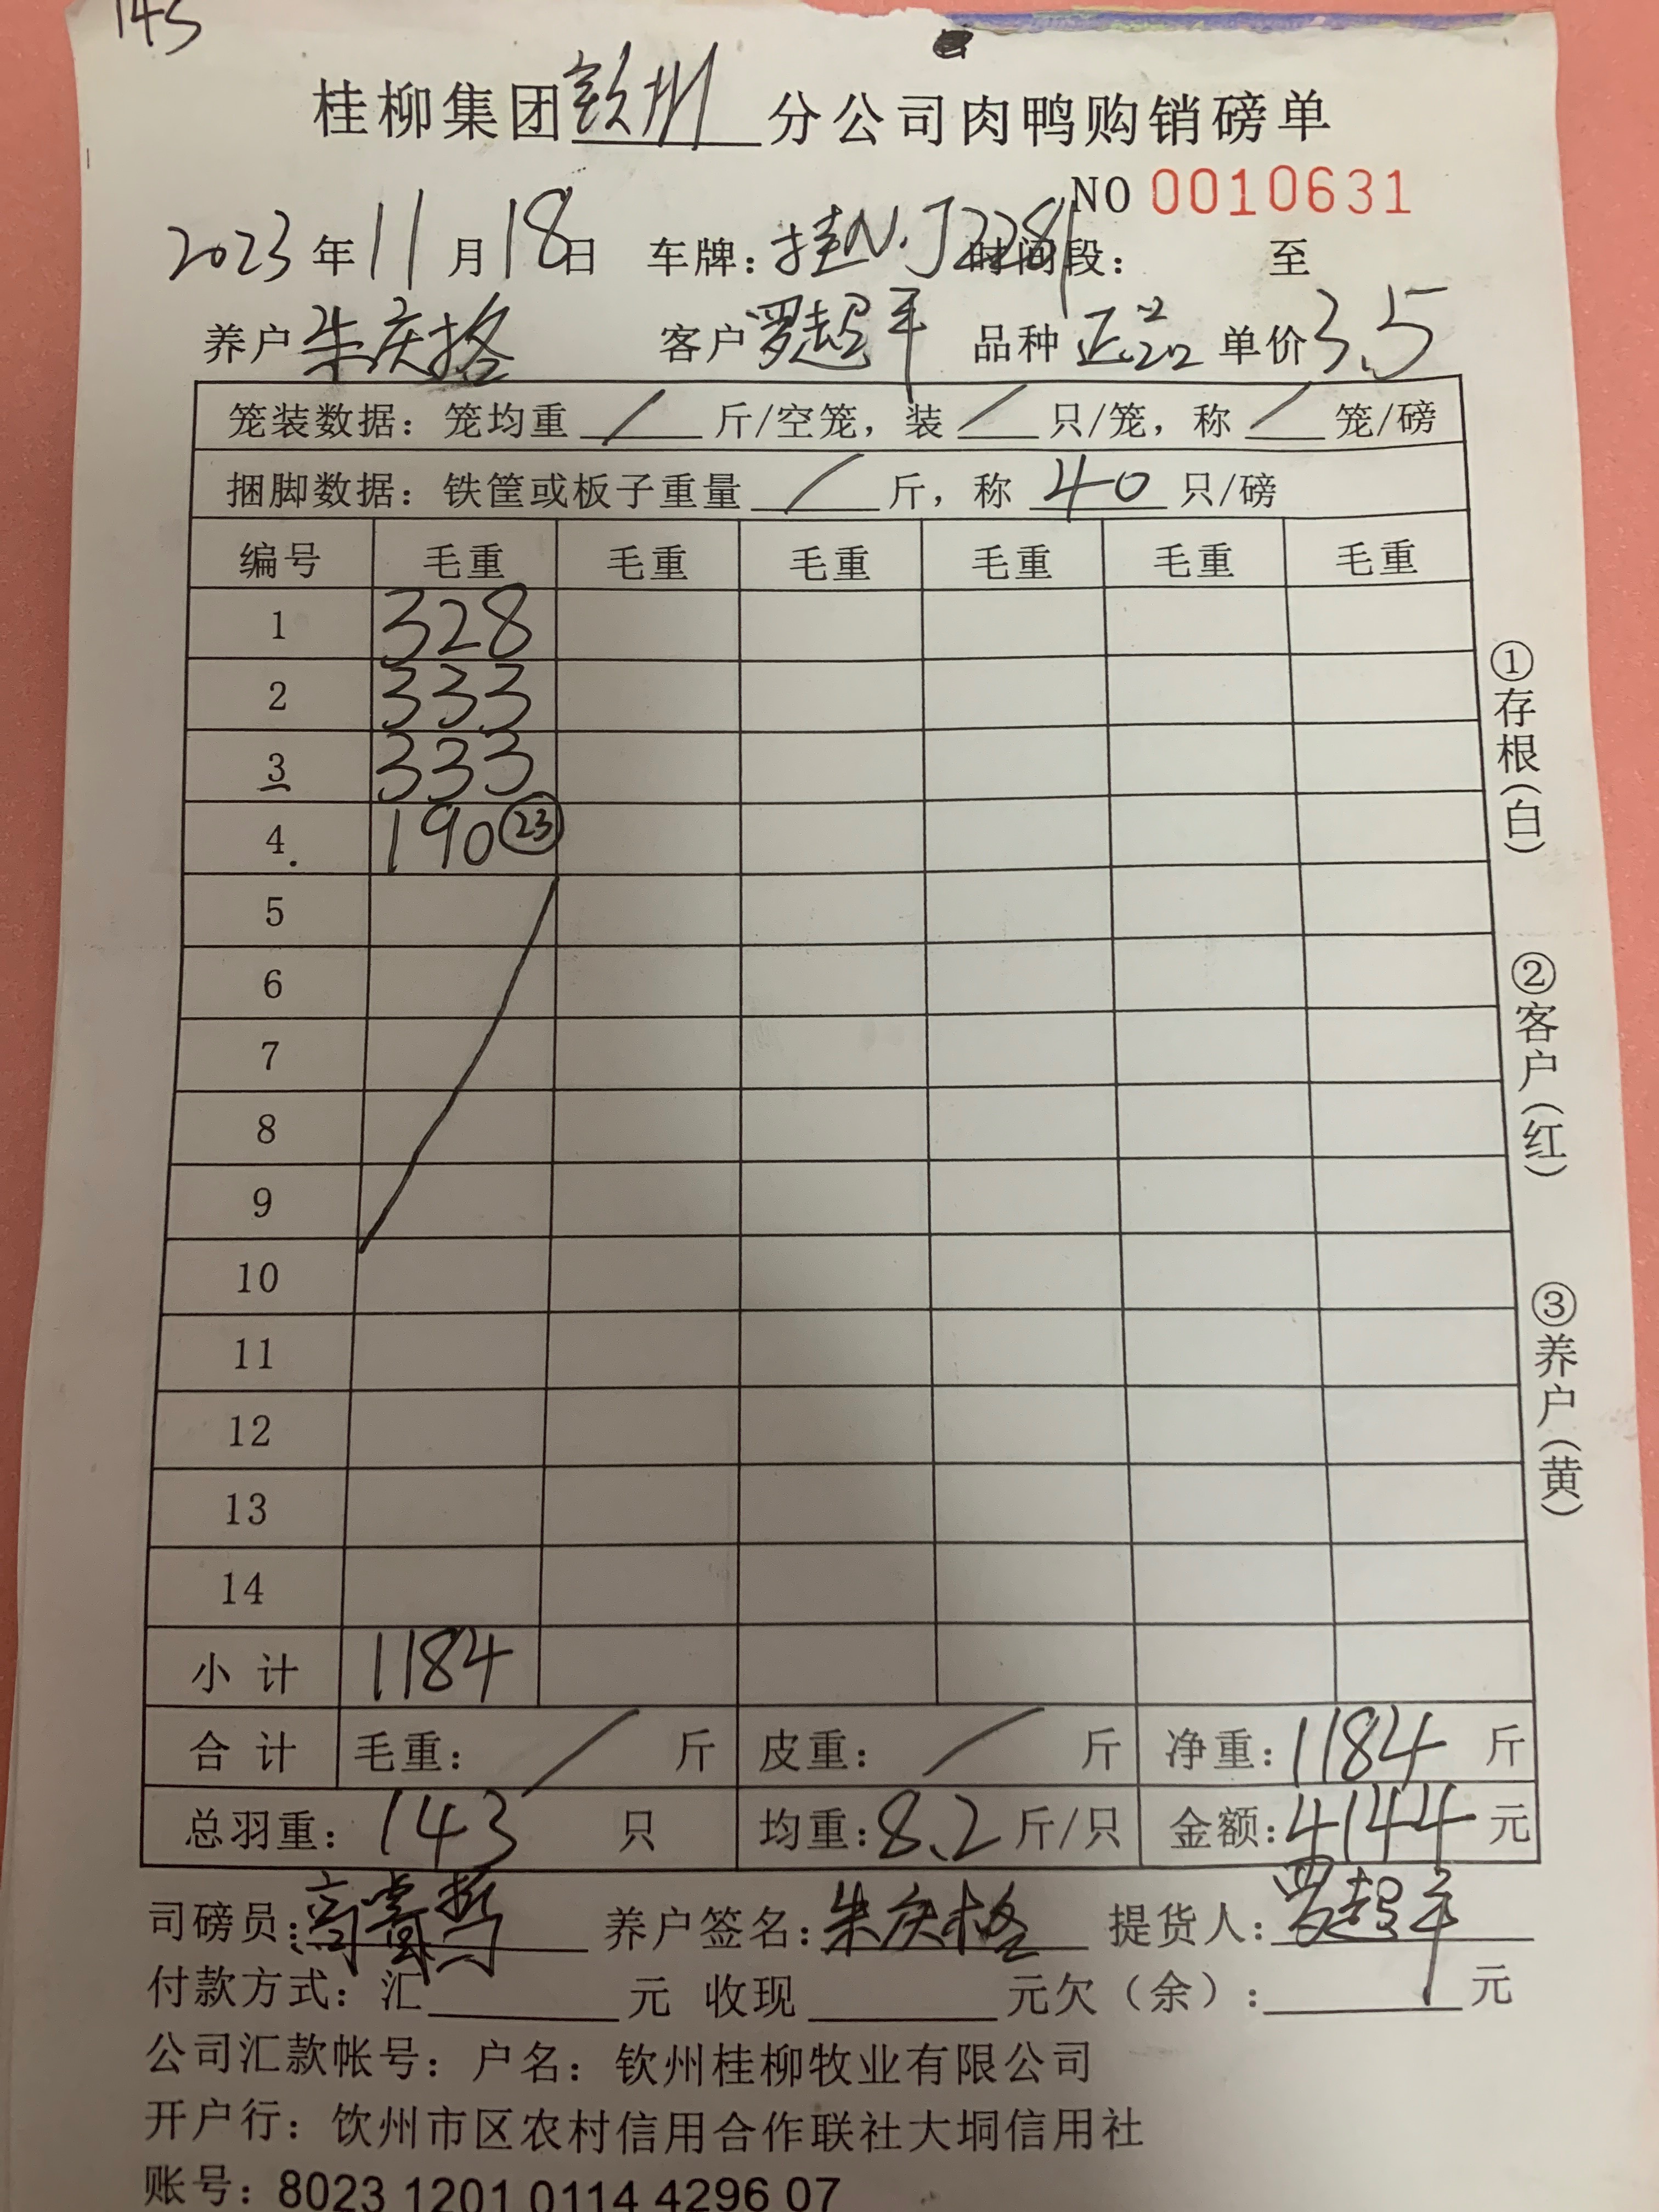 143
桂柳集团钦州分公司肉鸭购销磅单
NO 0010631
2023年11月18日 车牌：桂N.J2281 时间段： 至
养户 朱庆格 客户 罗超平 品种 正品 单价 3.5
笼装数据：笼均重 / 斤/空笼，装 / 只/笼，称 / 笼/磅
捆脚数据：铁筐或板子重量 / 斤，称 40 只/磅
编号 毛重 毛重 毛重 毛重 毛重 毛重
1 328
2 333
3 333
4 190 23
5
6
7
8
9
10
11
12
13
14
小计 1184
合计 毛重： / 斤 皮重： / 斤 净重：1184 斤
总羽重：143 只 均重：8.2斤/只 金额：4144元
司磅员： 养户签名：朱庆格 提货人：罗超平
付款方式：汇 元 收现 元欠（余）： 元
公司汇款帐号：户名：钦州桂柳牧业有限公司
开户行：饮州市区农村信用合作联社大垌信用社
账号：8023 1201 0114 4296 07
①存根（白）
②客户（红）
③养户（黄）